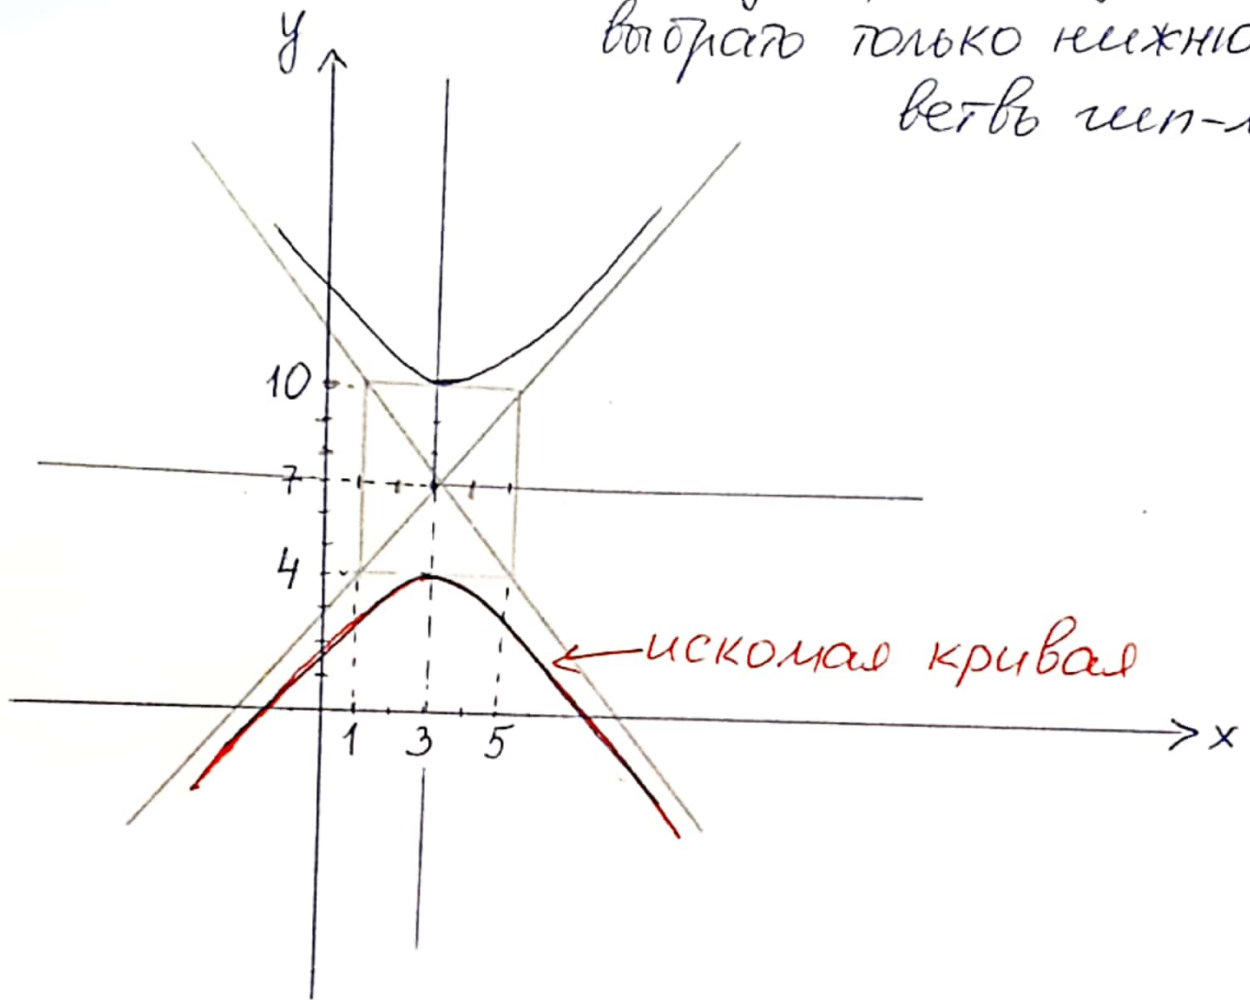 y
выбрать только нижню
ветвь гип-л
10
7
4
искомая кривая
1 3 5
x